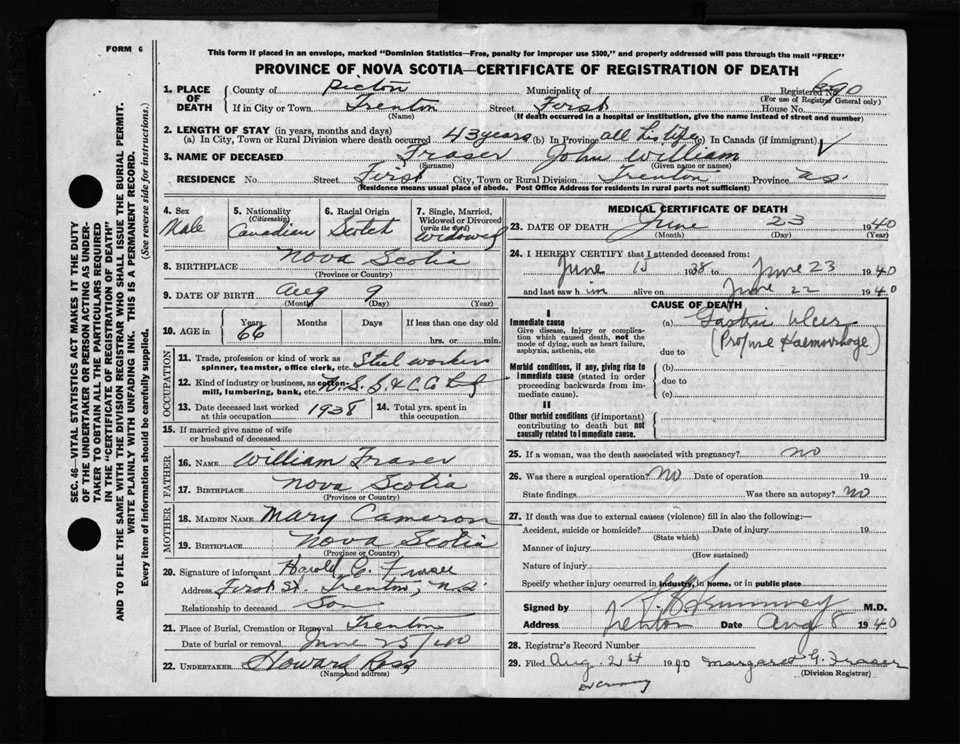 FORM 6
This form if placed in an envelope, marked "Dominion Statistics—Free, penalty for improper use $300," and properly addressed will pass through the mail "FREE"
PROVINCE OF NOVA SCOTIA—CERTIFICATE OF REGISTRATION OF DEATH
1. PLACE OF DEATH { County of Pictou Municipality of Registered No. 690
(For use of Registrar General only)
If in City or Town Trenton Street First House No.
(Name) (If death occurred in a hospital or institution, give the name instead of street and number)
2. LENGTH OF STAY (in years, months and days)
(a) In City, Town or Rural Division where death occurred 43 years (b) In Province all his life (c) In Canada (if immigrant) ✓
3. NAME OF DECEASED Fraser John William
(Surname) (Given name or names)
RESIDENCE No. Street First City, Town or Rural Division Trenton Province N.S.
(Residence means usual place of abode. Post Office Address for residents in rural parts not sufficient)
4. Sex Male
5. Nationality (Citizenship) Canadian
6. Racial Origin Scotch
7. Single, Married, Widowed or Divorced (write the word) Widowed
8. BIRTHPLACE Nova Scotia
(Province or Country)
9. DATE OF BIRTH Aug 9
(Month) (Day) (Year)
10. AGE in { Years Months Days If less than one day old
66 hrs. or min.
OCCUPATION
11. Trade, profession or kind of work as spinner, teamster, office clerk, etc. Steel worker
12. Kind of industry or business, as cotton-mill, lumbering, bank, etc.
13. Date deceased last worked at this occupation 1938
14. Total yrs. spent in this occupation
15. If married give name of wife or husband of deceased
FATHER
16. NAME William Fraser
17. BIRTHPLACE Nova Scotia
(Province or Country)
MOTHER
18. MAIDEN NAME Mary Cameron
19. BIRTHPLACE Nova Scotia
(Province or Country)
20. Signature of informant Harold C. Fraser
Address First St. Trenton, N.S.
Relationship to deceased Son
21. Place of Burial, Cremation or Removal Trenton
Date of burial or removal June 25/40
22. UNDERTAKER Howard Ross
(Name and address)
MEDICAL CERTIFICATE OF DEATH
23. DATE OF DEATH June 23 1940
(Month) (Day) (Year)
24. I HEREBY CERTIFY that I attended deceased from:
June 15 1938 to June 23 1940
and last saw him alive on June 22 1940
CAUSE OF DEATH
I
Immediate cause (a) Gastric Ulcer
Give disease, injury or complication which caused death, not the mode of dying, such as heart failure, asphyxia, asthenia, etc.
(Profuse Haemorrhage)
due to
Morbid conditions, if any, giving rise to immediate cause (stated in order proceeding backwards from immediate cause).
(b)
due to
(c)
II
Other morbid conditions (if important) contributing to death but not causally related to immediate cause.
25. If a woman, was the death associated with pregnancy? no
26. Was there a surgical operation? No Date of operation 19
State findings Was there an autopsy? No
27. If death was due to external causes (violence) fill in also the following:—
Accident, suicide or homicide? Date of injury 19
(State which)
Manner of injury
(How sustained)
Nature of injury
Specify whether injury occurred in industry, in home, or in public place
Signed by M.D.
Address Trenton Date Aug 8 1940
28. Registrar's Record Number
29. Filed Aug. 1940 Margaret G. Fraser
(Division Registrar)
SEC. 46—VITAL STATISTICS ACT MAKES IT THE DUTY
OF THE UNDERTAKER OR PERSON ACTING AS UNDER-
TAKER TO OBTAIN ALL THE PARTICULARS REQUIRED
IN THE "CERTIFICATE OF REGISTRATION OF DEATH"
AND TO FILE THE SAME WITH THE DIVISION REGISTRAR WHO SHALL ISSUE THE BURIAL PERMIT.
WRITE PLAINLY WITH UNFADING INK. THIS IS A PERMANENT RECORD.
Every item of information should be carefully supplied. (See reverse side for instructions.)